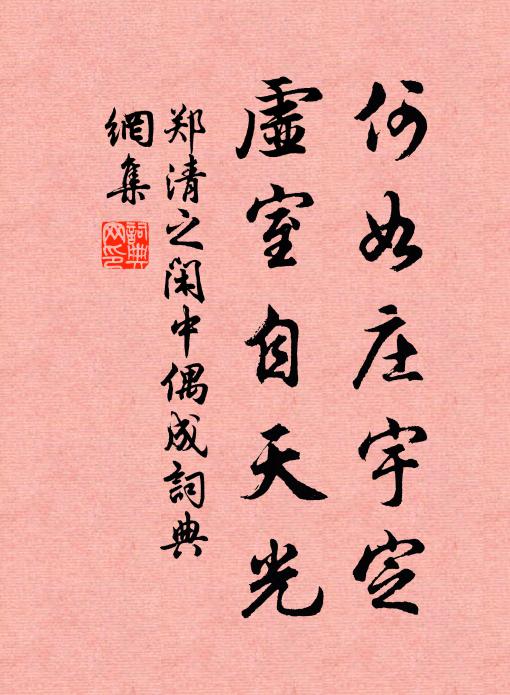 何如庄宇定
虚室自天光
郑清之闲中偶成詞典
網集
詞典
网印